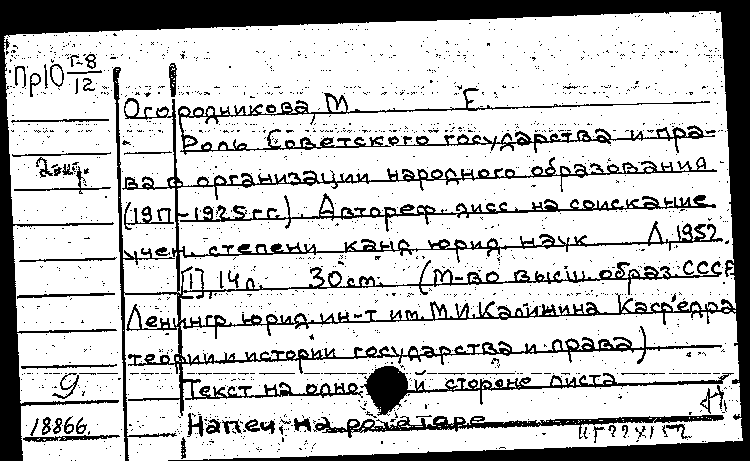 Пр10 Г-8/12
Огородникова, М. Е.
Роль Советского государства и пра-
2 экз.
ва в организации народного образования
(1917-1925 гг.). Автореф. дисс. на соискание
учен. степени канд. юрид. наук Л, 1952.
[I], 14 л. 30 см. (М-во высш. образ. СССР
Ленингр. юрид. ин-т им. М.И. Калинина Кафедра
теории и истории государства и права)
9. Текст на одно й стороне листа
18866. Напеч. на ротаторе